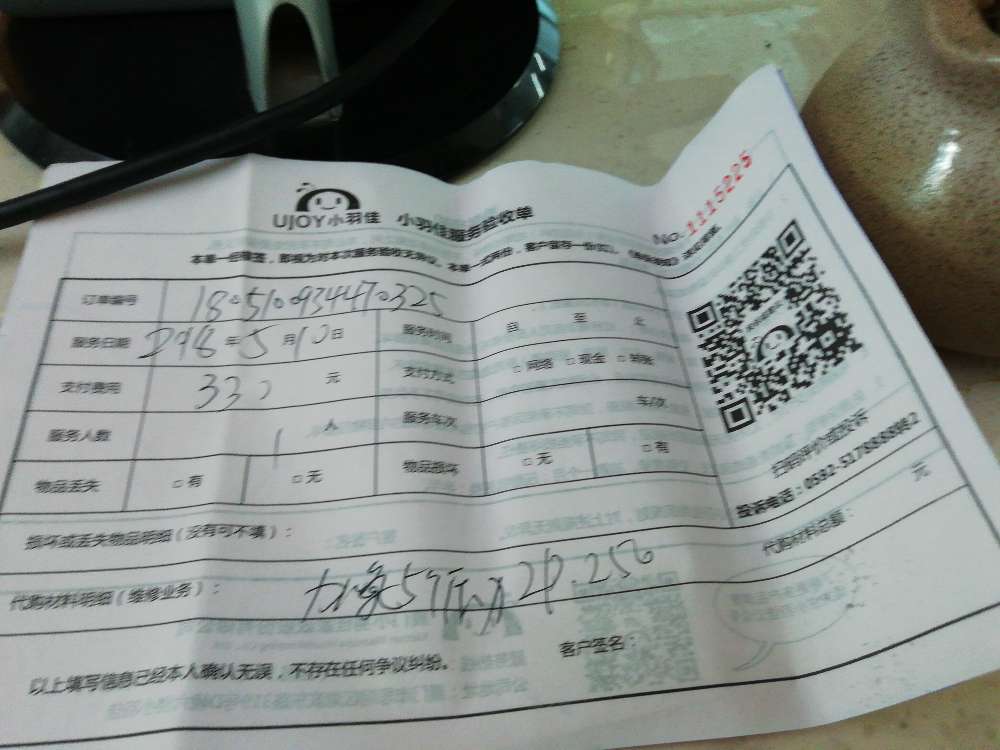 UJOY小羽佳 小羽佳服务验收单 No.1115225
本单一经填签，即视为对本次服务验收无异议。本单一式两份，客户留存一份
订单编号 180510934470325
服务日期 2018年5月10日 服务时间 自 至 止
支付费用 330 元 支付方式 □网络 □现金 □转账
服务人数 1 人 服务车次 车/次
物品丢失 □有 □无 物品损坏 □无 □有
扫码评价或投诉
投诉电话：0592-5178888转2
损坏或丢失物品明细（没有可不填）： 元
代购材料明细（维修业务）： 代购材料总额：
以上填写信息已经本人确认无误，不存在任何争议纠纷。 客户签名：